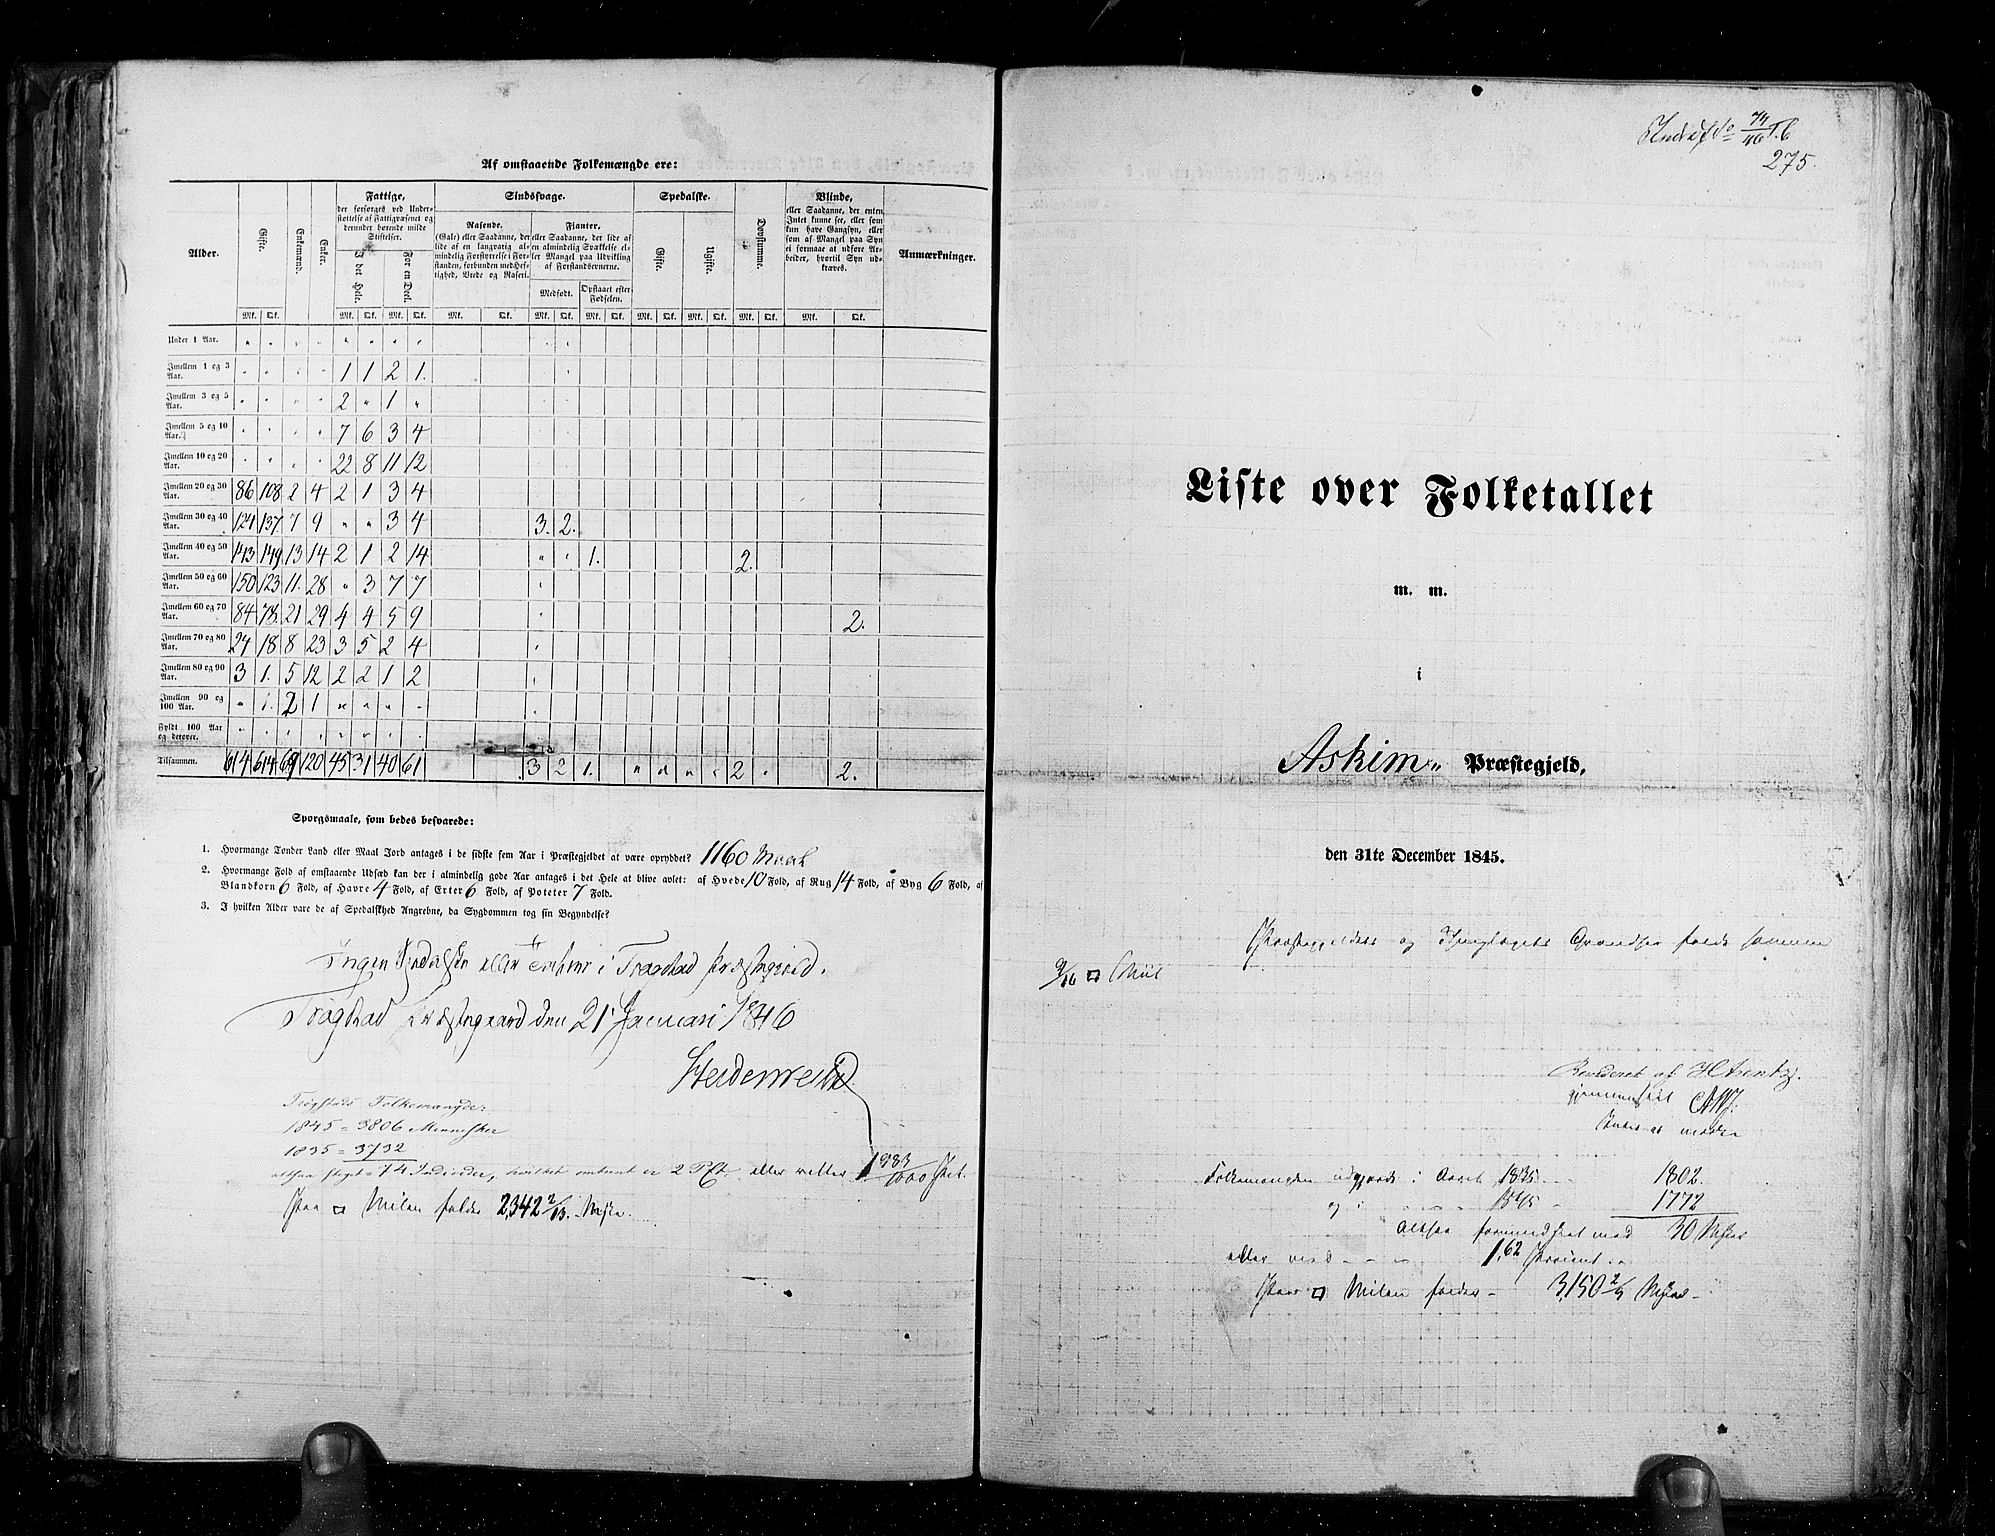 Af omstaaende Folkemængde ere:
Alder.
Gifte.
Enkemænd.
Enker.
Fattige,
der forsørges ved Under-
støttelse af Fattigvæsenet og
derunder hørende milde
Stiftelser.
I det Hele.
For en Deel.
Sindssvage.
Rasende.
(Gale) eller Saadanne, der
lide af en langvarig al-
mindelig Forstyrrelse i For-
standen, forbunden med Hef-
tighed, Vrede og Raseri.
Fjanter,
eller Saadanne, der lide af
en almindelig Svækkelse el-
ler Mangel paa Udvikling
af Forstandsevnerne.
Medfødt.
Opstaaet efter
Fødselen.
Spedalske.
Gifte.
Ugifte.
Døvstumme.
Blinde,
eller Saadanne, der enten
Intet kunne see, eller som
kun have Gangsyn, eller
som af Mangel paa Syn
ei formaae at udføre Ar-
beider, hvortil Syn ud-
kræves.
Anmærkninger.
Mk. Qk. Mk. Qk. Mk. Qk. Mk. Qk. Mk. Qk. Mk. Qk. Mk. Qk. Mk. Qk. Mk. Qk. Mk. Qk.
Under 1 Aar.
Imellem 1 og 3 Aar. 1 1 2 1.
Imellem 3 og 5 Aar. 2 " 1 "
Imellem 5 og 10 Aar. 7 6 3 4
Imellem 10 og 20 Aar. 22 8 11 12
Imellem 20 og 30 Aar. 86 108 2 4 2 1 3 4
Imellem 30 og 40 Aar. 121 137 7 9 " " 3 4 3. 2.
Imellem 40 og 50 Aar. 143 149 13 14 2 1 2 14 " " 1. 2.
Imellem 50 og 60 Aar. 150 123 11. 28 " 3 7 7
Imellem 60 og 70 Aar. 84 78. 21 29 4 4 5 9 2.
Imellem 70 og 80 Aar. 27 18 8 23 3 5 2 4
Imellem 80 og 90 Aar. 3 1. 5 12 2 2 1 2
Imellem 90 og 100 Aar. " 1. 2 1 " " "
Fyldt 100 Aar og derover.
Tilsammen. 614 614 69 120 45 31 40 61 3 2 1. " " " " 2 " 2.
Spørgsmaale, som bedes besvarede:
1. Hvormange Tønder Land eller Maal Jord antages i de sidste fem Aar i Præstegjeldet at være opryddet? 1160 Maal
2. Hvormange Fold af omstaaende Udsæd kan der i almindelig gode Aar antages i det Hele at blive avlet: af Hvede 10 Fold, af Rug 14 Fold, af Byg 6 Fold, af
Blandkorn 6 Fold, af Havre 4 Fold, af Erter 6 Fold, af Poteter 7 Fold.
3. I hvilken Alder vare de af Spedalskhed Angrebne, da Sygdommen tog sin Begyndelse?
Ingen Spedalske eller i Trøgstad Præstegjeld.
Trøgstad Præstegaard den 21 Januari 1846
Heidenreich
Trøgstads Folkemængde:
1845 = 3806 Mennesker
1835 = 3732
altsaa steget = 74 Individer, hvilket omtrent er 2 PCt. eller rettere 1 983/1000 PCt.
Paa □ Milen falder 2342 2/13. Msker.
74/46
275.
Liste over Folketallet
m. m.
i
Askims Præstegjeld,
den 31te December 1845.
Præstegjeldets og Thinglagets Grændser falde sammen
9/16 □ Miil
Revideret af H Arentz.
gjennemseet
Folkemængden udgjorde i Aaret 1835 - - 1802.
og i - - - 1845 - 1772
altsaa formindsket med 30 Msker
eller med - - - 1,62 Procent -
Paa □ Milen falder - 3,150 2/9 Msker -